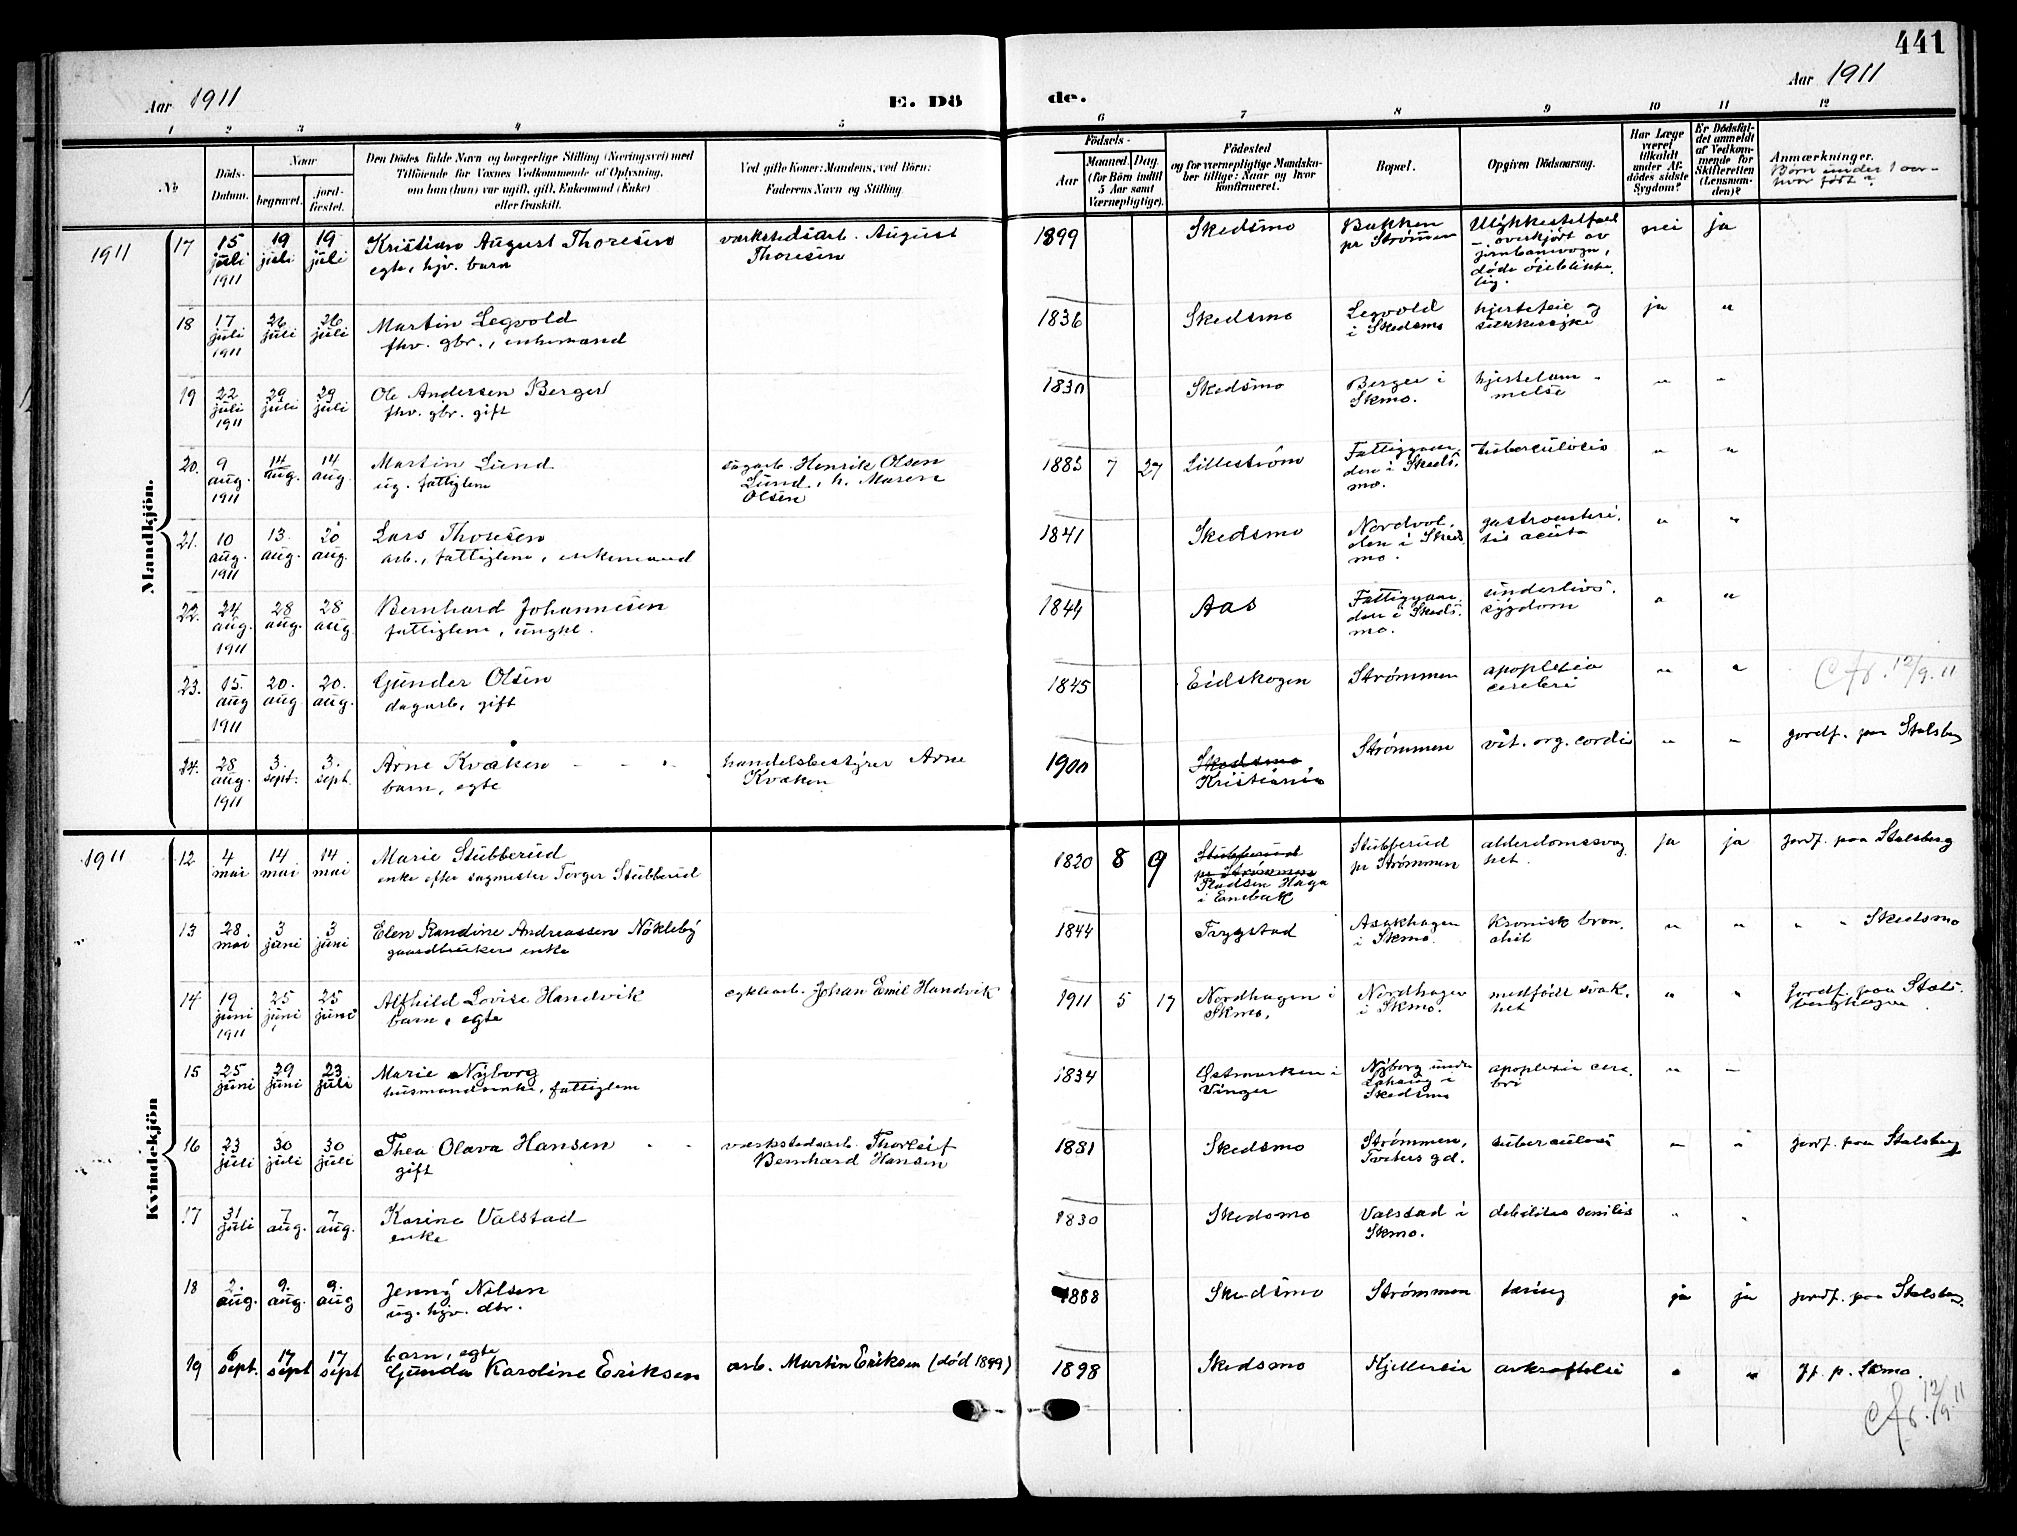 441
Aar 1911
E. Dö
de.
Aar 1911
1 2 3 4 5 6 7 8 9 10 11 12
No
Döds-
Datum.
Naar
begravet.
jord-
fæstet.
Den Dödes fulde Navn og borgerlige Stilling (Næringsvei) med
Tilföiende for Voxnes Vedkommende af Oplysning,
om han (hun) var ugift, gift, Enkemand (Enke)
eller fraskilt.
Ved gifte Koner: Mandens, ved Börn:
Faderens Navn og Stilling.
Födsels-
Aar
Maaned. Dag.
(for Börn indtil
5 Aar samt
Værnepligtige).
Födested
og for værnepligtige Mandska-
ber tillige: Naar og hvor
konfirmeret.
Bopæl.
Opgiven Dödsaarsag.
Har Læge
været
tilkaldt
under Af-
dödes sidste
Sygdom?
Er Dödsfal-
det anmeldt
af Vedkom-
mende for
Skifteretten
(Lensman-
den)?
Anmærkninger.
Börn under 1 aar –
hvor født?
Mandkjön.
1911
17 15 juli 1911 19 juli 19 juli Kristian August Thoresen
egte, hjv. barn
værkstedsarb. August
Thoresen
1899 Skedsmo Bakken
pr Strömmen
Ulykkestilfæld
– overkjørt av
jernbanevogn,
døde øieblikke.
lig.
nei ja
18 17 juli 1911 26 juli 26 juli Martin Legvold
fhv. gbr., enkemand
1836 Skedsmo Legvold
i Skedsmo
hjertefeil og
sukkersyke
ja "
19 22 juli 1911 29 juli 29 juli Ole Andersen Berger
fhv. gbr. gift
1830 Skedsmo Berger i
Skmo.
hjertelam-
melse
" "
20. 9 aug. 1911 14 aug. 14 aug. Martin Lund
ug. fattiglem
sagarb. Henrik Olsen
Lund, h. Maren
Olsen
1883 7 27 Lilleström Fattiggaar.
den i Skeds.
mo.
tuberculosis " "
21. 10 aug. 1911 13 aug. 20 aug. Lars Thoresen
arb., fattiglem, enkemand
1841 Skedsmo Nordvol.
den i Skeds.
mo.
gastroenteri.
tis acuta
" "
22. 24 aug. 1911 28 aug. 28 aug. Bernhard Johannesen
fattiglem, ungkl.
1844 Aas Fattiggaar.
den i Skeds.
mo.
underlivs.
sygdom
" "
23. 15. aug 1911 20. aug 20. aug. Gunder Olsen
dagarb, gift
1845 Eidskogen Strømmen apoplexia
cerebri
" " 12/9. 11
24. 28 aug. 1911 3. sept. 3. sept. Arne Kvaken
barn, egte
handelsbestyrer Arne
Kvaken
1900 Skedsmo
Kristiania
Strømmen vit. org. cordis " " jordf. paa Stalsberg
Kvindekjön
1911
12 4 mai 14 mai 14 mai Marie Stubberud
enke efter sagmester Torger Stubberud
1820 8 9 Stubberud
pr Strømmen
Pladsen Haga
i Enebak
Stubberud
pr Strømmen
alderdomssvag
het.
ja ja jordf. paa Stalsberg
13 28 mai 3 juni 3 juni Elen Randine Andreassen Nökleby
gaardbrukers enke
1844 Trygstad Asakhagen
i Skmo.
Kronisk bron.
chit
" " " " Skedsmo
14 19 juni 1911 25 juni 25 juni Alfhild Lovise Handvik
barn, egte
cyklearb. Johan Emil Handvik
1911 5 17 Nordhagen i
Skmo.
Nordhagen
i Skmo.
medfødt svak.
het
" " Jordf. paa Stals.
berghagen
15 25 juni 29 juni 23 juli Marie Nyborg
husmandsenke, fattiglem
1834 Østmarken i
Vinger
Nyborg under
i
Skedsmo
apoplexia cere.
bri
" –
16 23 juli 30 juli 30 juli Thea Olava Hansen
gift
værkstedsarb. Thorleif
Bernhard Hansen
1881 Skedsmo Strømmen,
Tveters gd.
tuberculosis – " jordf. paa Stalsberg
17 31 juli 7 aug. 7 aug. Karine Valstad
enke
1830 Skedsmo Valstad i
Skmo.
debilitas senilis " "
18 2. aug. 9. aug. 9. aug Jenny Nilsen
ug. hjv. dtr.
1888 Skedsmo Strømmen tæring ja ja jordf. paa Stalsberg.
19 6 sept. 17 sept 17 sept barn, egte
Gunda Karoline Eriksen
arb. Martin Eriksen (død 1899)
1898 Skedsmo Kjelleren avkræftelse " " Jf. p. Skmo.
12/9. 11